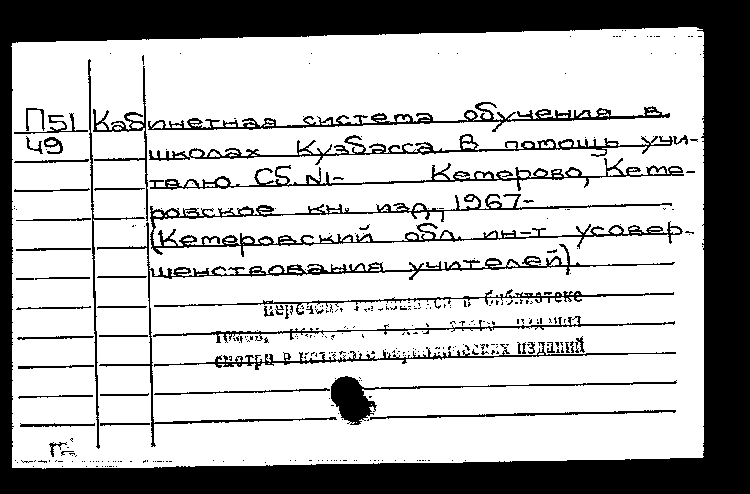 П51 Кабинетная система обучения в
49 школах Кузбасса. В помощь учи-
телю. Сб. №1- Кемерово, Кеме-
ровское кн. изд., 1967-
(Кемеровский обл. ин-т усовер-
шенствования учителей).
Перечень имеющихся в библиотеке
томов, этого издания
смотри в каталоге периодических изданий